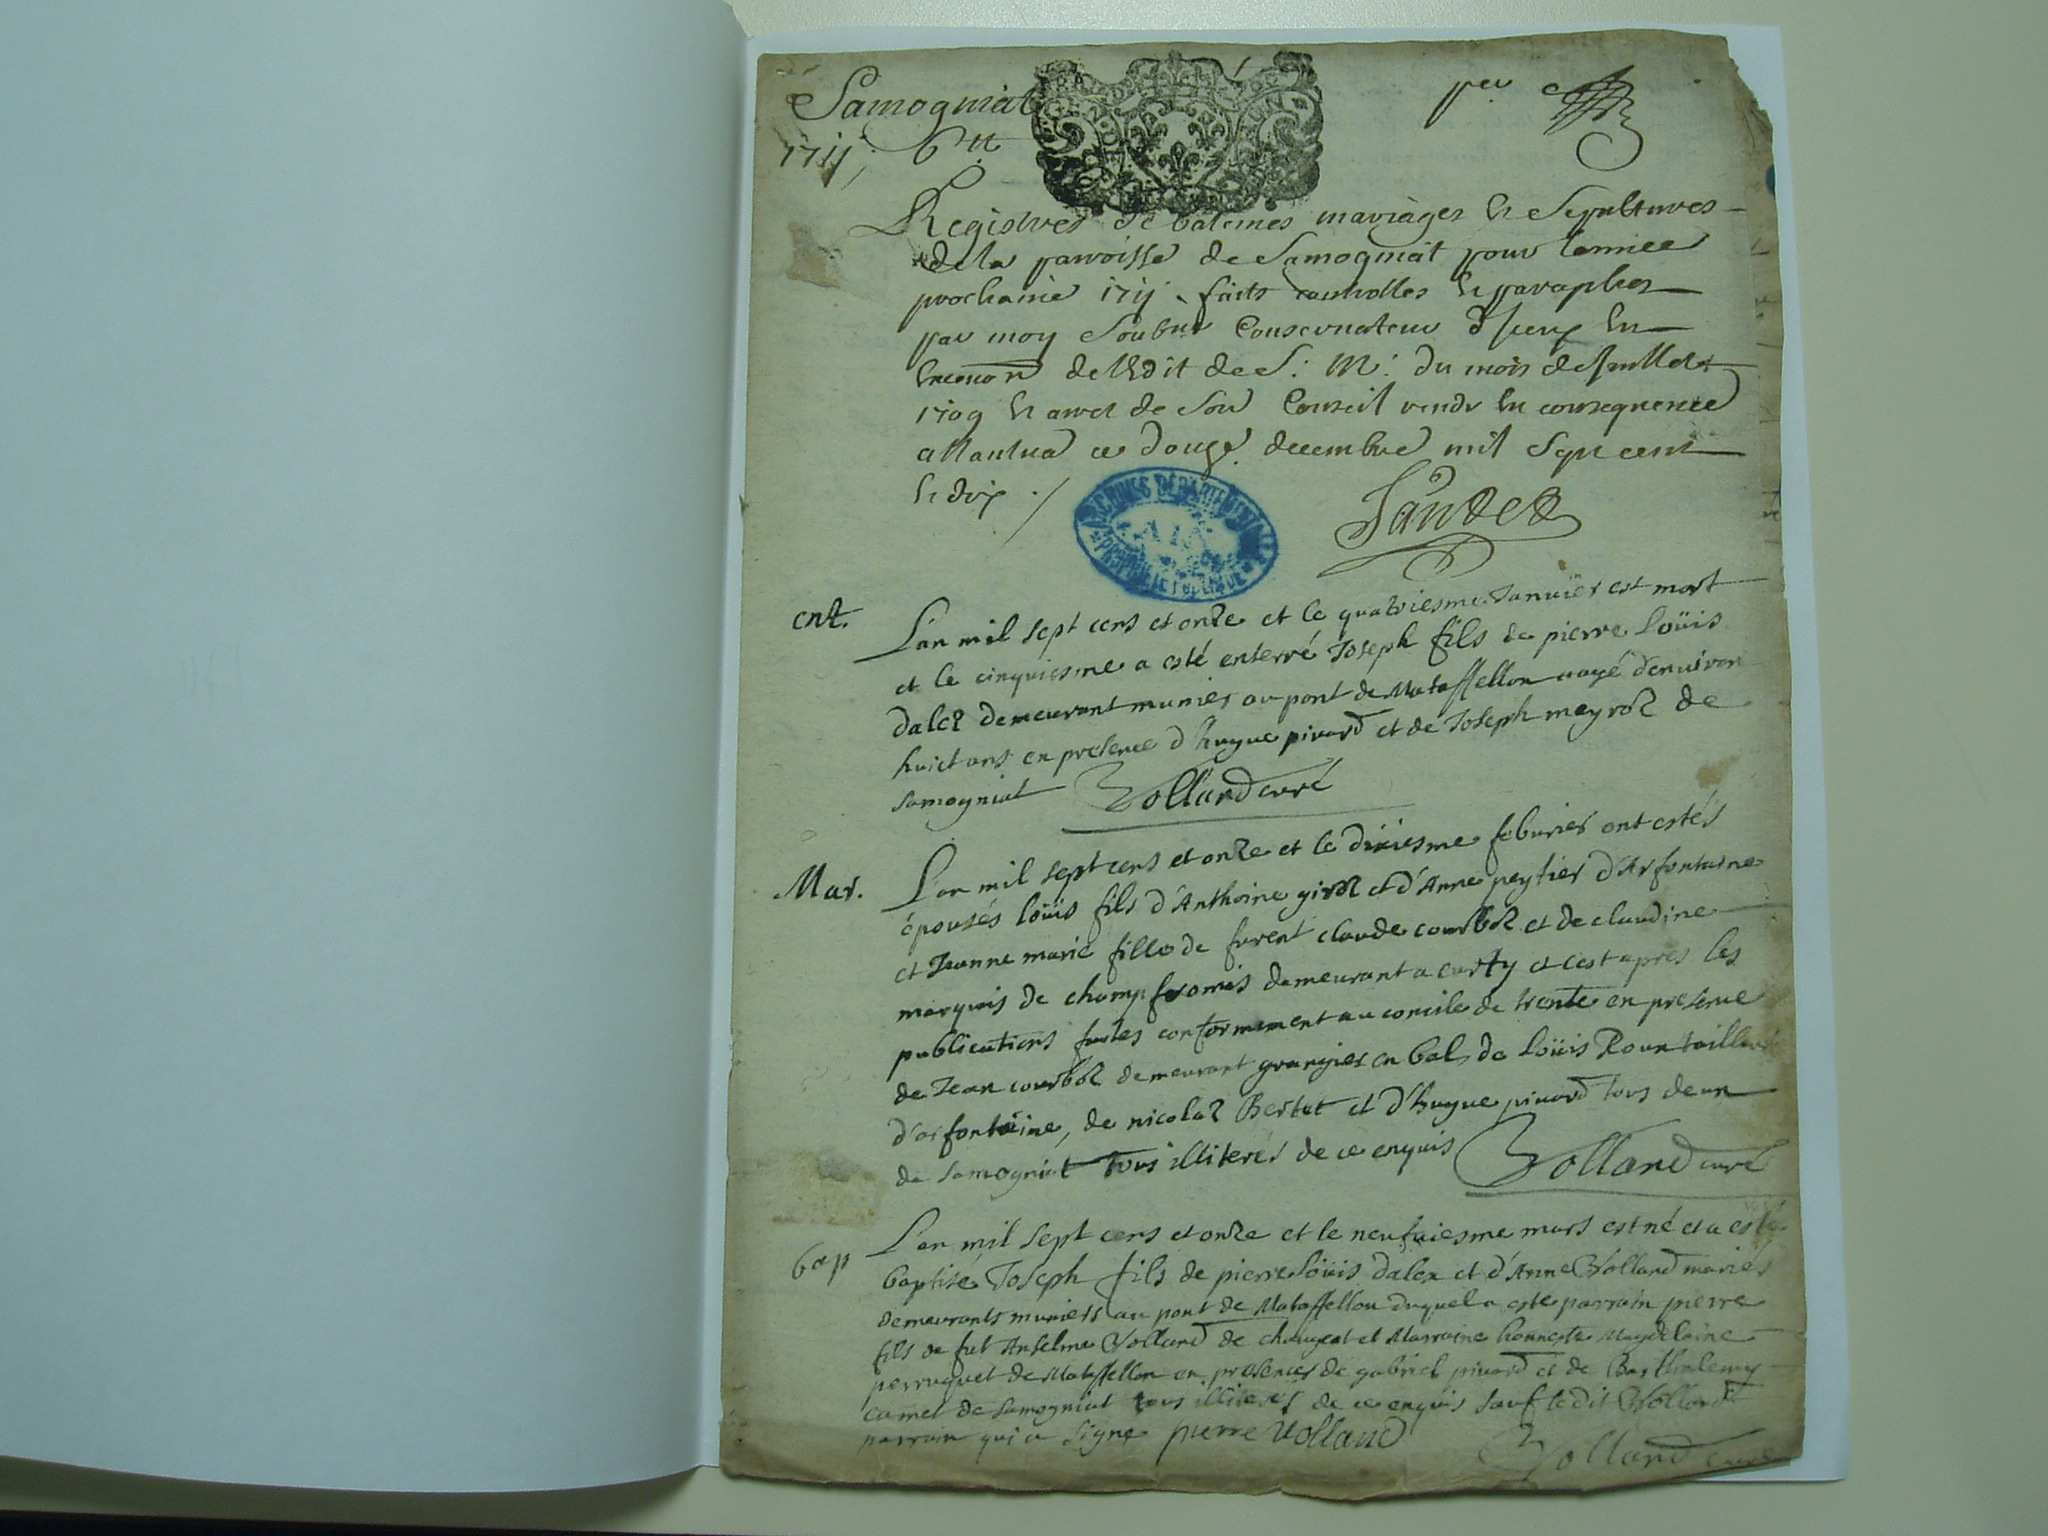 Samogniat
1711
Registres de batemes mariages et Sepultures
de la parroisse de Samogniat pour lannee
prochaine 1711 faits et paraphes
par moy Conservateur
de lEdit de S. M. du mois de Juillet
1709 et arret de Son Conseil rendu en consequence
a Nantua ce douze decembre mil Sept cent
et dix
ARCHIVES DÉPARTEMENTALES
AIN
PROPRIÉTÉ PUBLIQUE
ent.
L'an mil sept cens et onze et le quatriesme Januier est mort
et le cinquiesme a esté enterré Joseph fils de pierre Loüis
dalez demeurant munier au pont de Mataffellon aagé d'enuiron
huict ans en presence d'hugue pivard et de Joseph meyroz de
samogniat Volland curé
Mar.
L'an mil sept cens et onze et le dixiesme feburier ont estés
épousés loüis fils d'Anthoine giroz et d'Anne peytier d'Arfontaine
et Jeanne marie fille de furent claude courboz et de claudine
marquis de champfromis demeurant a curty et c'est apres les
publications faites conformement au concile de trente en presence
de Jean courboz demeurant grangier en bal, de loüis Rountaillard
d'arfontaine, de nicolaz Bertet et d'hugue pivard tous deux
de samogniat tous illiterés de ce enquis Volland curé
bap
L'an mil sept cens et onze et le neufuiesme mars est né et a esté
baptisé Joseph fils de pierre loüis dalex et d'Anne Volland mariés
demeurants muniers au pont de Mataffellon duquel a esté parrain pierre
fils de fut Anselme Volland de chougeat et Marraine honneste Magdelaine
perruquet de Mataffellon en presences de gabriel pivard et de Barthelemy
camet de samogniat tous illiterés de ce enquis sauf ledit Volland
parrain qui a signe pierre Volland
Volland curé